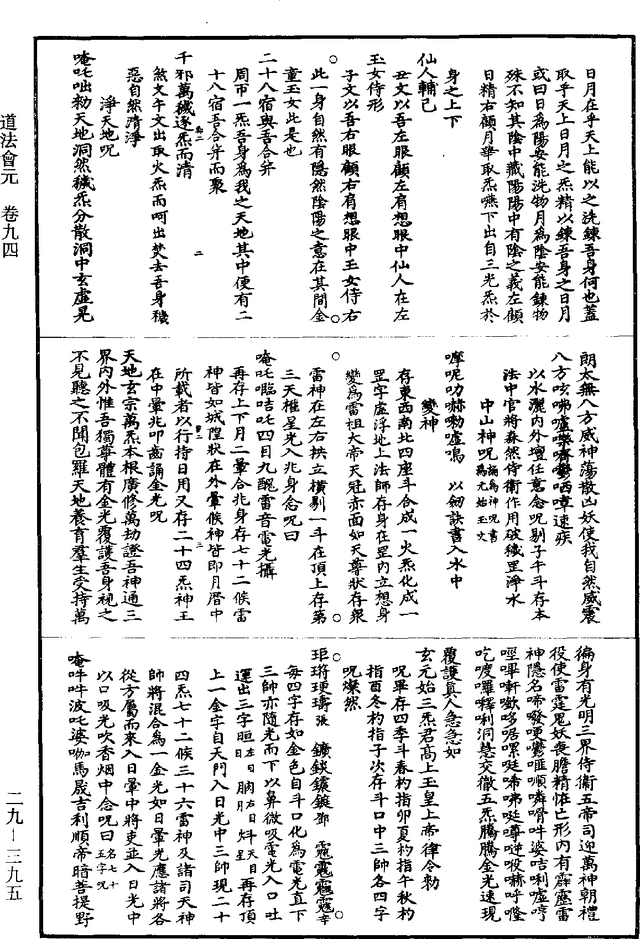 道法會元　卷九四
日月在乎天上能以之洗鍊吾身何也蓋
取乎天上日月之炁精以鍊吾身之日月
或曰日為陽安能洗物月為陰安能鍊物
殊不知其陰中藏陽陽中有陰之義左顧
日精右顧月華取炁嚥下出自三光炁於
身之上下
仙人輔己
丑文以吾左眼顧左有想眼中仙人在左
玉女侍形
子文以吾右眼顧右有想眼中玉女侍右
此一身自然有隱然陰陽之意在其間金
童玉女此是也
二十八宿與吾合并
周帀一炁吾身為我之天地其中便有二
十八宿吾合并而聚
千邪萬穢逐炁而清
煞文午文出取火炁而呵出焚去吾身穢
惡自然清淨
淨天地呪
唵吒咄勑天地洞然穢炁分散洞中玄虛晃
朗太無八方威神蕩散凶妖使我自然威震
八方呟咈嚧㘑嚌鬱哂嘩速疾
以水灑內外壇任意念呪剔子午斗存本
法中官將森然侍衛作用破穢罡淨水
中山神呪
摩呢叻嚇嘞嚧嗚　以劒訣書入水中
變神
存東西南北四座斗合成一火炁化成一
罡字虛浮地上法師存身在罡內立想身
變為雷祖大帝天冠赤面如天尊狀存衆
雷神在左右拱立橫剔一斗在頂上存第
三天槯星光入兆身念呪曰
唵吒臨咭吒四目九醜雷音電光攝
再存上下月二暈合兆身存七十二候雷
神皆如城隍狀在外暈候神皆即月曆中
所載者以行持日用又存二十四炁神王
在中暈兆叩齒誦金光呪
天地玄宗萬炁本根廣修萬劫證吾神通三
界內外惟吾獨尊體有金光覆護吾身視之
不見聽之不聞包羅天地養育羣生受持萬
徧身有光明三界侍衛五帝司迎萬神朝禮
役使雷霆鬼妖喪膽精怪亡形內有霹靂雷
神隱名
洞慧交徹五炁騰騰金光速現
覆護真人急急如
玄元始三炁君高上玉皇上帝律令勑
呪畢存四季斗春杓指卯夏杓指午秋杓
指酉冬杓指子次存斗口中三帥各四字
呪燦然
每四字存如金色自斗口化為電光直下
三帥亦隨光而下以鼻微吸電光入口吐
運出三字再存頂
上一金字自天門入日光中三帥現二十
四炁七十二候三十六雷神及諸司天神
師將混合為一金光如日暈光應諸將各
從方屬而來入日暈中將吏並入日光中
以口吸光吹香烟中念呪曰
唵吽吽波吒婆咖馬晟吉利順帝暗菩提野
二九－三九五